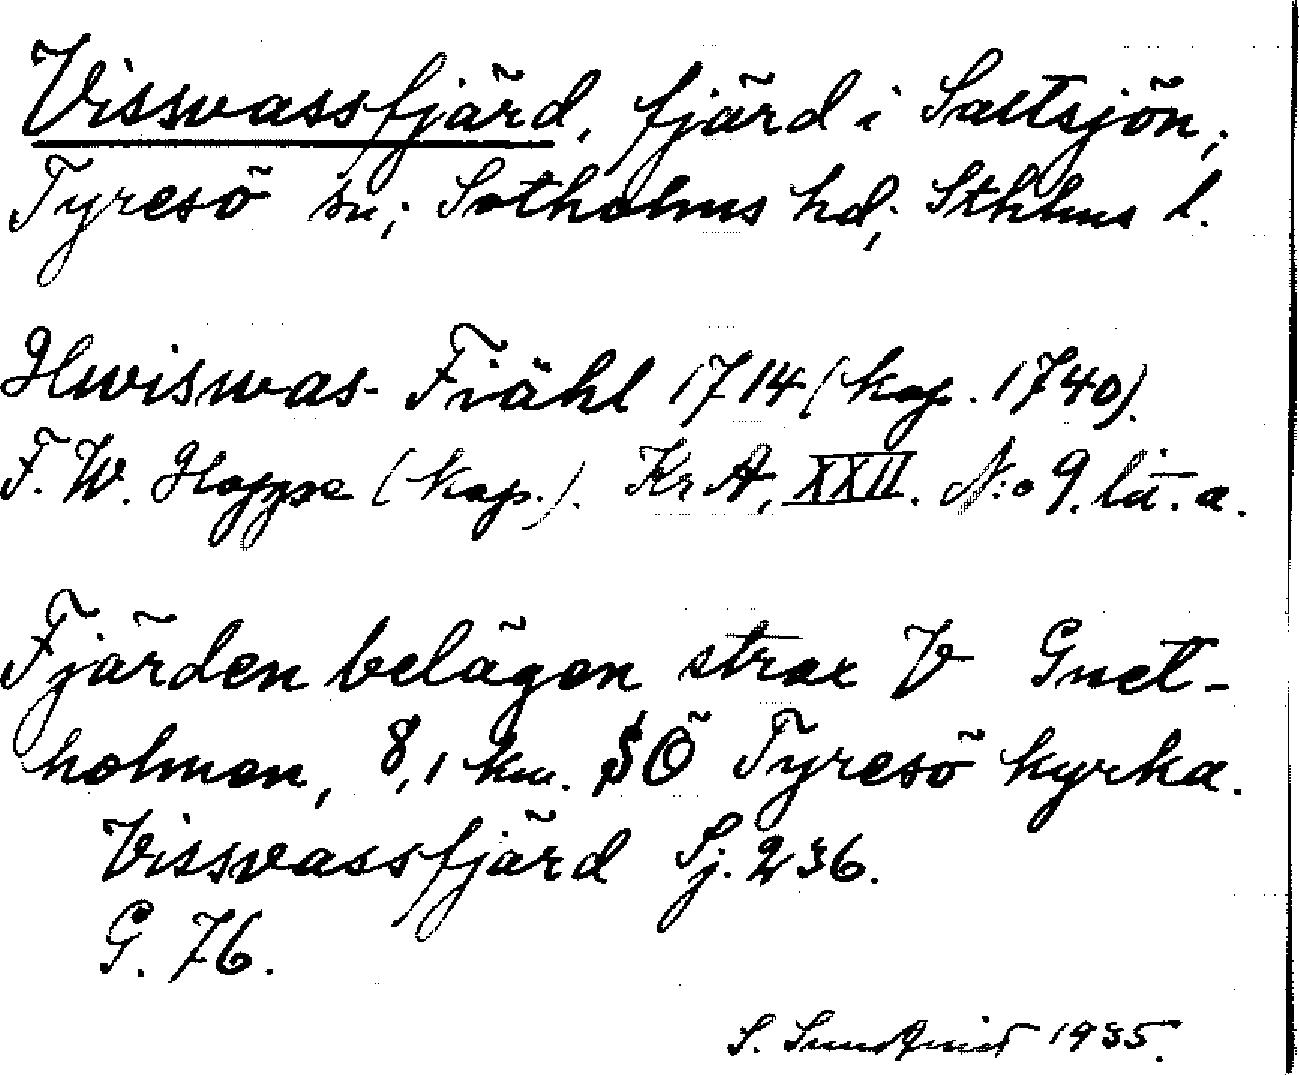 Vissvassfjärd, fjärd i Saltsjön,
Tyresö sn; Sotholms hd; Sthlms l.
Hwiswas- Fiähl 1714 (kop. 1740).
F. W. Hoppe (kop.). KrA, XXII. N:o 9. lit. a.
Fjärden belägen strax V Gnet-
holmen, 8,1 km. SÖ Tyresö kyrka.
Vissvassfjärd Sj. 236.
G. 76.
S. Sundqvist 1935.